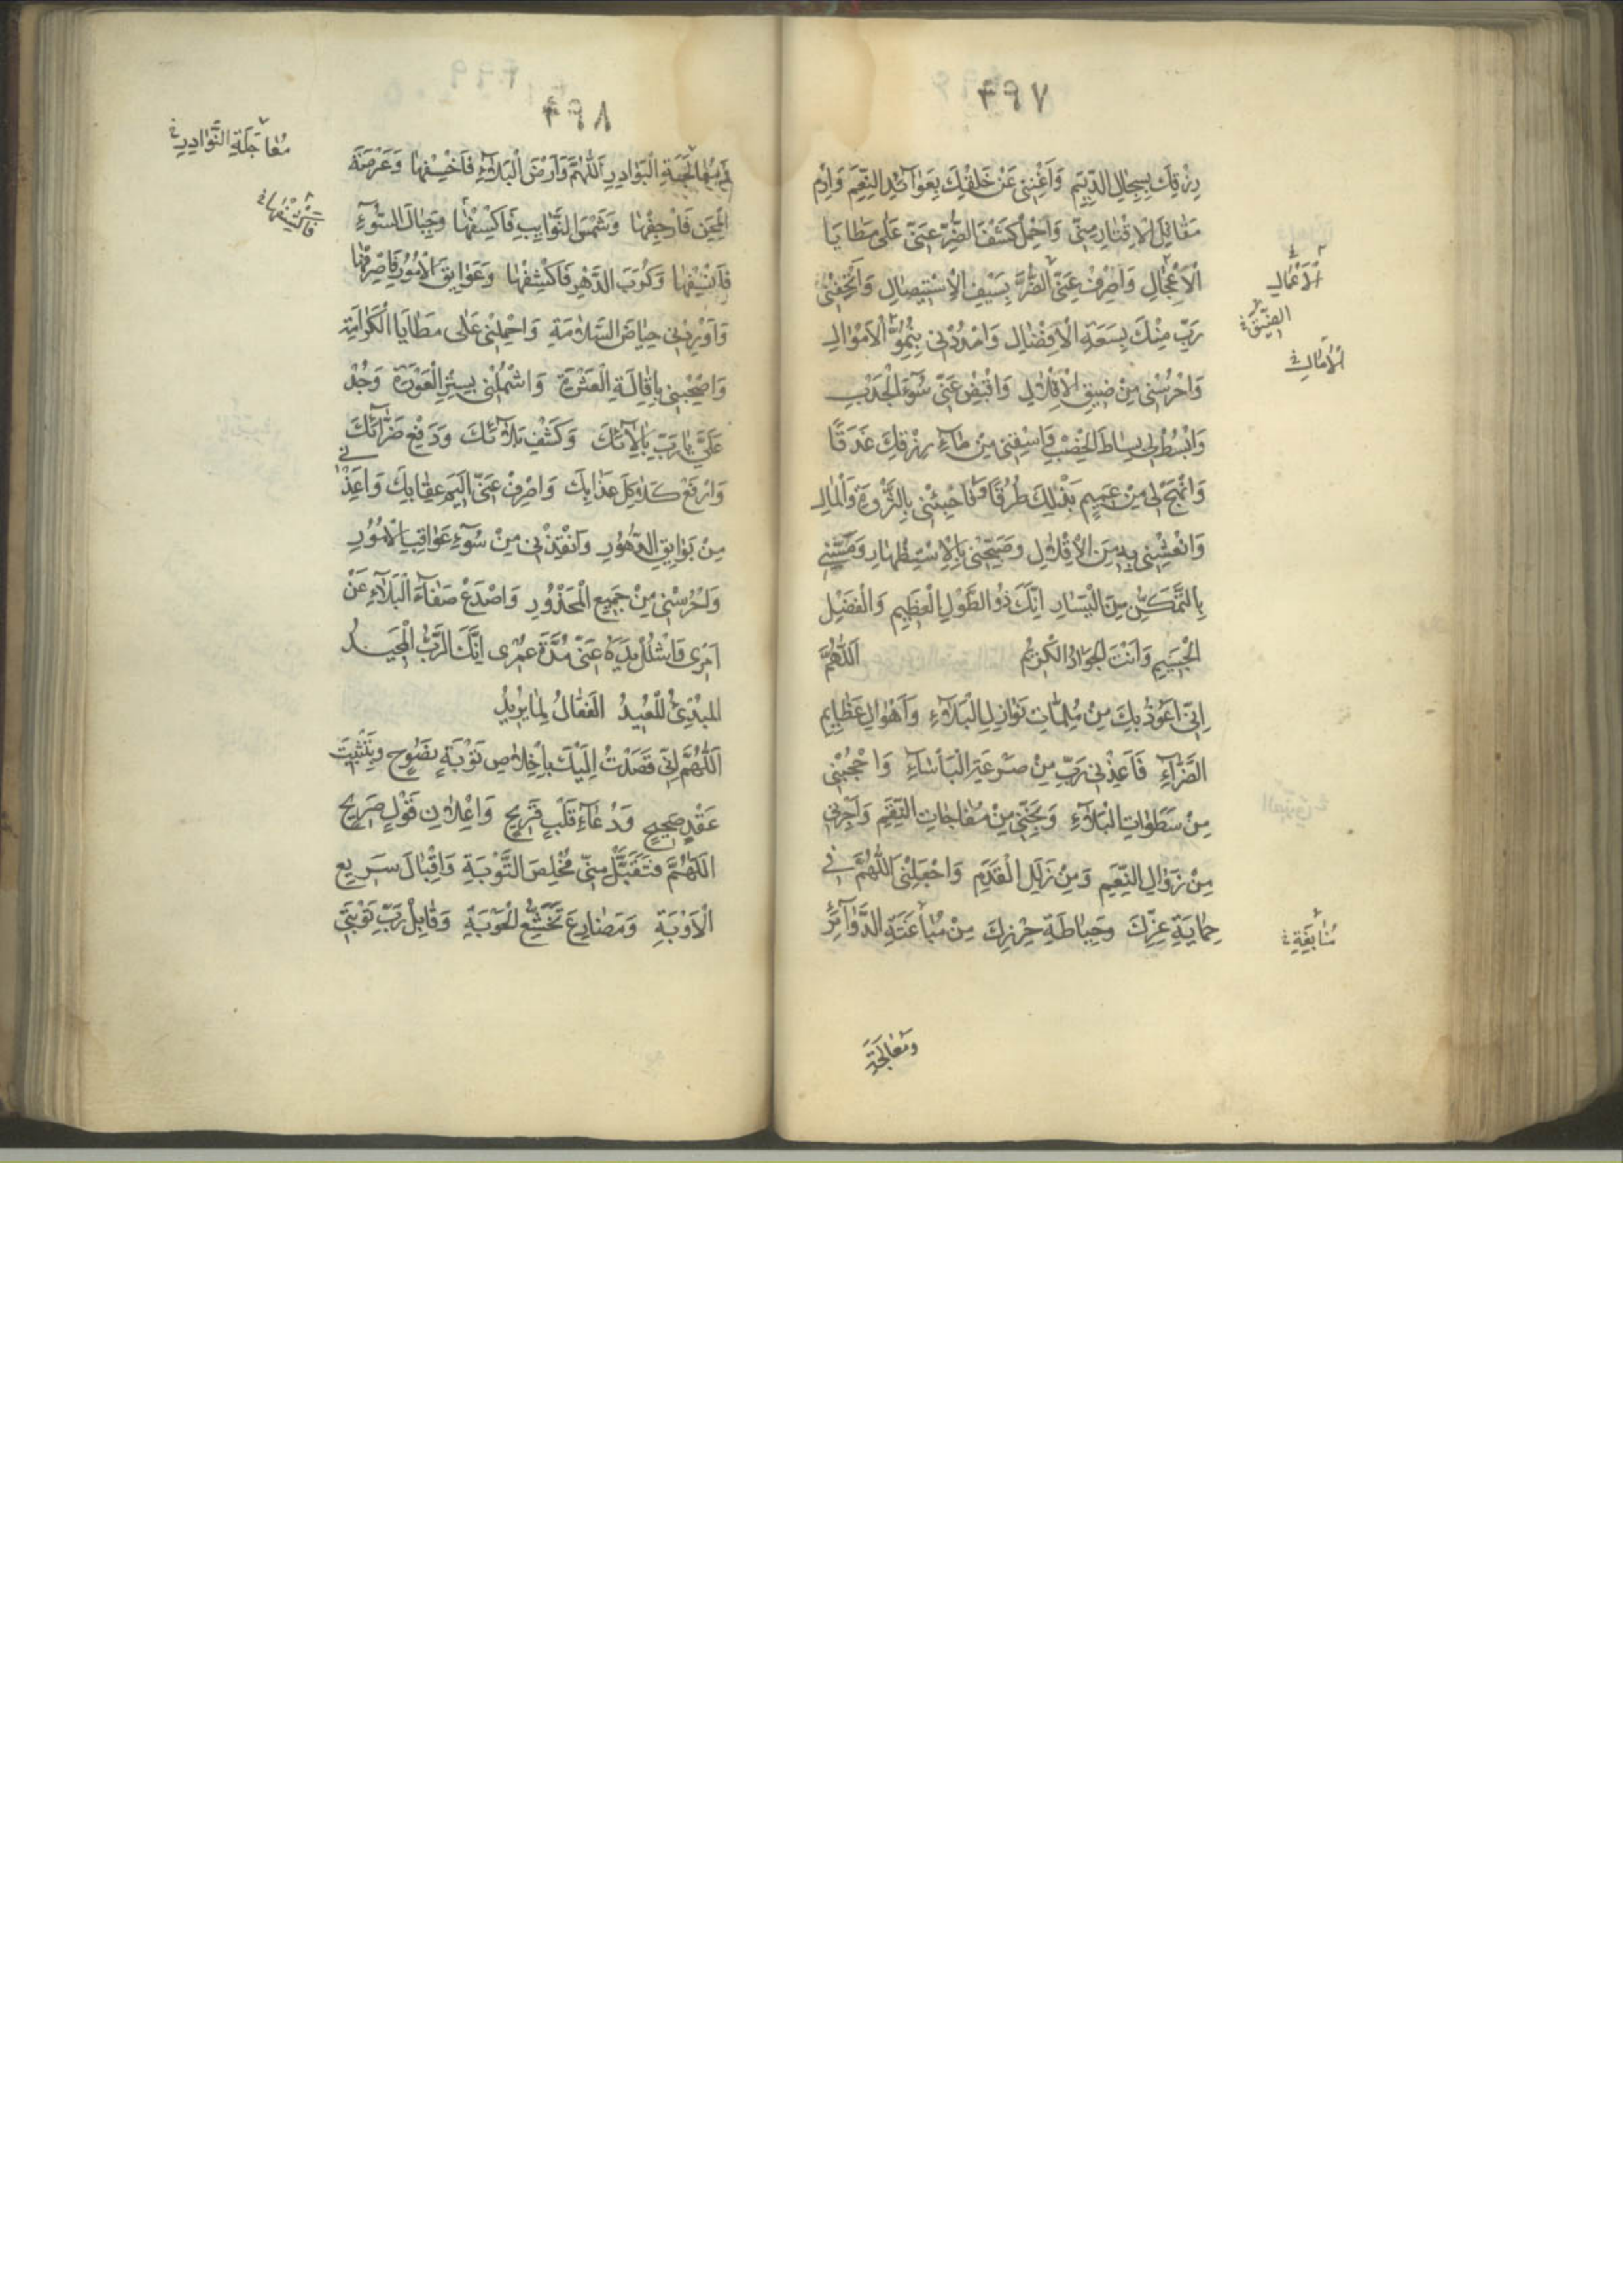 ٤٩٧
رِزْقِكَ بِسِجَالِ الدِّيَمِ وَاَغْنِنِى عَنْ خَلْقِكَ بِعَوَآئِدِ النِّعَمِ وَارْمِ
مَقَاتِلَ الْاِقْتَارِ مِنِّى وَاحْمِلْ كَشْفَ الضُّرِّ عَنِّى عَلٰى مَطَايَا
الْاَعْجَالِ وَاصْرِفْ عَنِّى الضُّرَّ بِسَيْفِ الْاِسْتِيصَالِ وَاَتْحِفْنِى
رَبِّ مِنْكَ بِسَعَةِ الْاَفْضَالِ وَامْدُدْنِى بِنُمُوِّ الْاَمْوَالِ
وَاحْرُسْنِى مِنْ ضِيقِ الْاِقْلَالِ وَاقْبِضْ عَنِّى سُوٓءَ الْجَدْبِ
وَابْسُطْ لِى بِسَاطَ الْخِصْبِ وَاسْقِنِى مِنْ مَآءِ رِزْقِكَ غَدَقًا
وَانْهَجْ لِى مِنْ عَمِيمِ بَذْلِكَ طُرُقًا وَفَاجِئْنِى بِالثَّرْوَةِ وَالْمَالِ
وَانْعَشْنِى بِهِ مِنَ الْاِقْلَالِ وَصَبِّحْنِى بِالْاِسْتِظْهَارِ وَمَسِّنِى
بِالتَّمَكُّنِ مِنَ الْيَسَارِ اِنَّكَ ذُو الطَّوْلِ الْعَظِيمِ وَالْفَضْلِ
الْجَسِيمِ وَاَنْتَ الْجَوَادُ الْكَرِيمُ اَللّٰهُمَّ
اِنِّى اَعُوذُ بِكَ مِنْ مُلِمَّاتِ نَوَازِلِ الْبَلَآءِ وَاَهْوَالِ عَظَايِمِ
الضَّرَّآءِ فَاَعِذْنِى رَبِّ مِنْ صَرْعَةِ الْبَأْسَآءِ وَاحْجُبْنِى
مِنْ سَطَوَاتِ الْبَلَآءِ وَنَجِّنِى مِنْ مُفَاجَاتِ النِّقَمِ وَاَجِرْنِى
مِنْ زَوَالِ النِّعَمِ وَمِنْ زَلَلِ الْقَدَمِ وَاجْعَلْنِى اللّٰهُمَّ فِى
حِمَايَةِ عِزِّكَ وَحِيَاطَةِ حِرْزِكَ مِنْ مُبَاغَتَةِ الدَّوَآئِرِ
الْاَعْمَالِ
الضِّيقَ
الْاٰمَالِ
وَمُعَالَجَةِ
٤٩٨
وَمُعَالَجَةِ الْبَوَادِرِ اَللّٰهُمَّ وَاَرْضَ الْبَلَآءِ فَاخْسِفْهَا وَعَرْصَةَ
الْمِحَنِ فَارْجِفْهَا وَشَمْسَ النَّوَايِبِ فَاكْسِفْهَا وَجِبَالَ السُّوٓءِ
فَانْسِفْهَا وَكُرَبَ الدَّهْرِ فَاكْشِفْهَا وَعَوَايِقَ الْاُمُورِ فَاصْرِفْهَا
وَاَوْرِدْنِى حِيَاضَ السَّلَامَةِ وَاحْمِلْنِى عَلٰى مَطَايَا الْكَرَامَةِ
وَاصْحَبْنِى بِاِقَالَةِ الْعَثْرَةِ وَاشْمُلْنِى بِسِتْرِ الْعَوْرَةِ وَجُدْ
عَلَىَّ يَا رَبِّ بِاٰلَآئِكَ وَكَشْفِ بَلَآئِكَ وَدَفْعِ ضَرَّآئِكَ
وَارْفَعْ كَلَاكِلَ عَذَابِكَ وَاصْرِفْ عَنِّى اَلِيمَ عِقَابِكَ وَاَعِذْنِى
مِنْ بَوَايِقِ الدُّهُورِ وَاَنْقِذْنِى مِنْ سُوٓءِ عَوَاقِبِ الْاُمُورِ
وَاحْرُسْنِى مِنْ جَمِيعِ الْمَحْذُورِ وَاصْدَعْ صَفَاةَ الْبَلَآءِ عَنْ
اَمْرِى وَاشْلُلْ يَدَهُ عَنِّى مُدَّةَ عُمْرِى اِنَّكَ الرَّبُّ الْمَجِيدُ
الْمُبْدِئُ الْمُعِيدُ الْفَعَّالُ لِمَا يُرِيدُ
اَللّٰهُمَّ اِنِّى قَصَدْتُ اِلَيْكَ بِاِخْلَاصِ تَوْبَةٍ نَصُوحٍ وَتَثْبِيتِ
عَقْدٍ صَحِيحٍ وَدُعَآءِ قَلْبٍ قَرِيحٍ وَاِعْلَانِ قَوْلٍ صَرِيحٍ
اَللّٰهُمَّ فَتَقَبَّلْ مِنِّى مُخْلَصَ التَّوْبَةِ وَاِقْبَالَ سَرِيعِ
الْاَوْبَةِ وَمَصَارِعَ تَخَشُّعِ الْحَوْبَةِ وَقَابِلْ رَبِّ تَوْبَتِى
مُعَاجَلَةِ النَّوَادِرِ